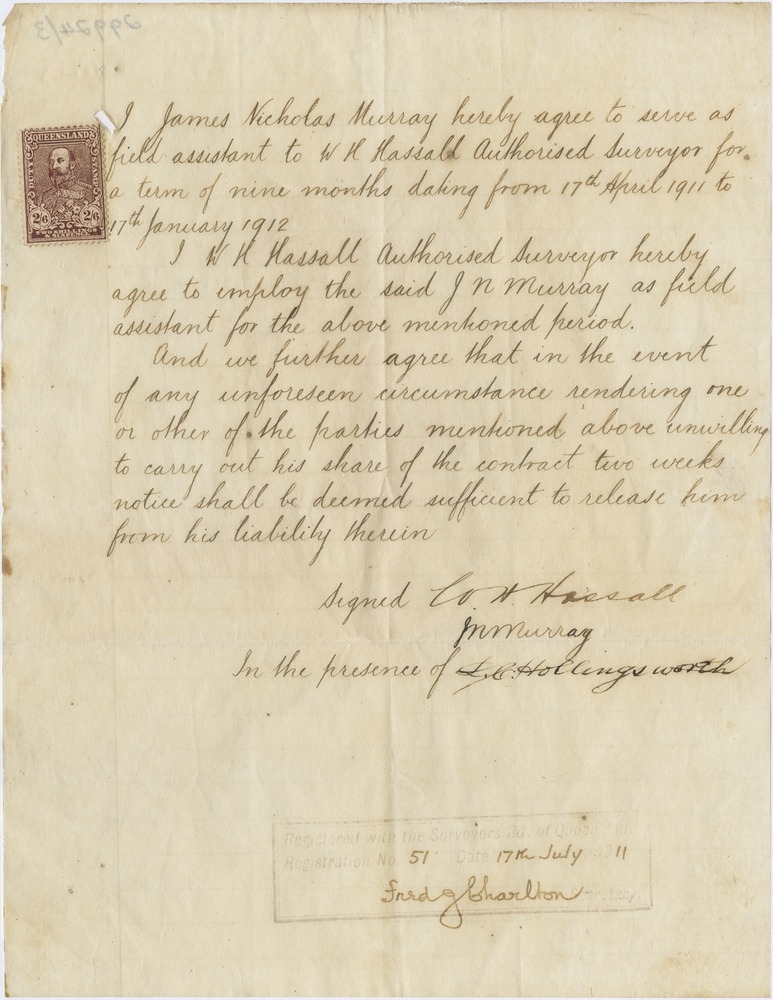 29924/3
QUEENSLAND
DUTY STAMP
2/6 2/6
I James Nicholas Murray hereby agree to serve as
field assistant to W H Hassall Authorised Surveyor for
a term of nine months dating from 17th April 1911 to
17th January 1912
I W H Hassall Authorised Surveyor hereby
agree to employ the said J N Murray as field
assistant for the above mentioned period.
And we further agree that in the event
of any unforeseen circumstance rendering one
or other of the parties mentioned above unwilling
to carry out his share of the contract two weeks
notice shall be deemed sufficient to release him
from his liability therein
Signed W. H. Hassall
JNMurray
In the presence of L.C. Hollingsworth
Registered with the Surveyors Bd. of Queensland
Registration No. 51 Date 17th July 1911
Fred G Charlton